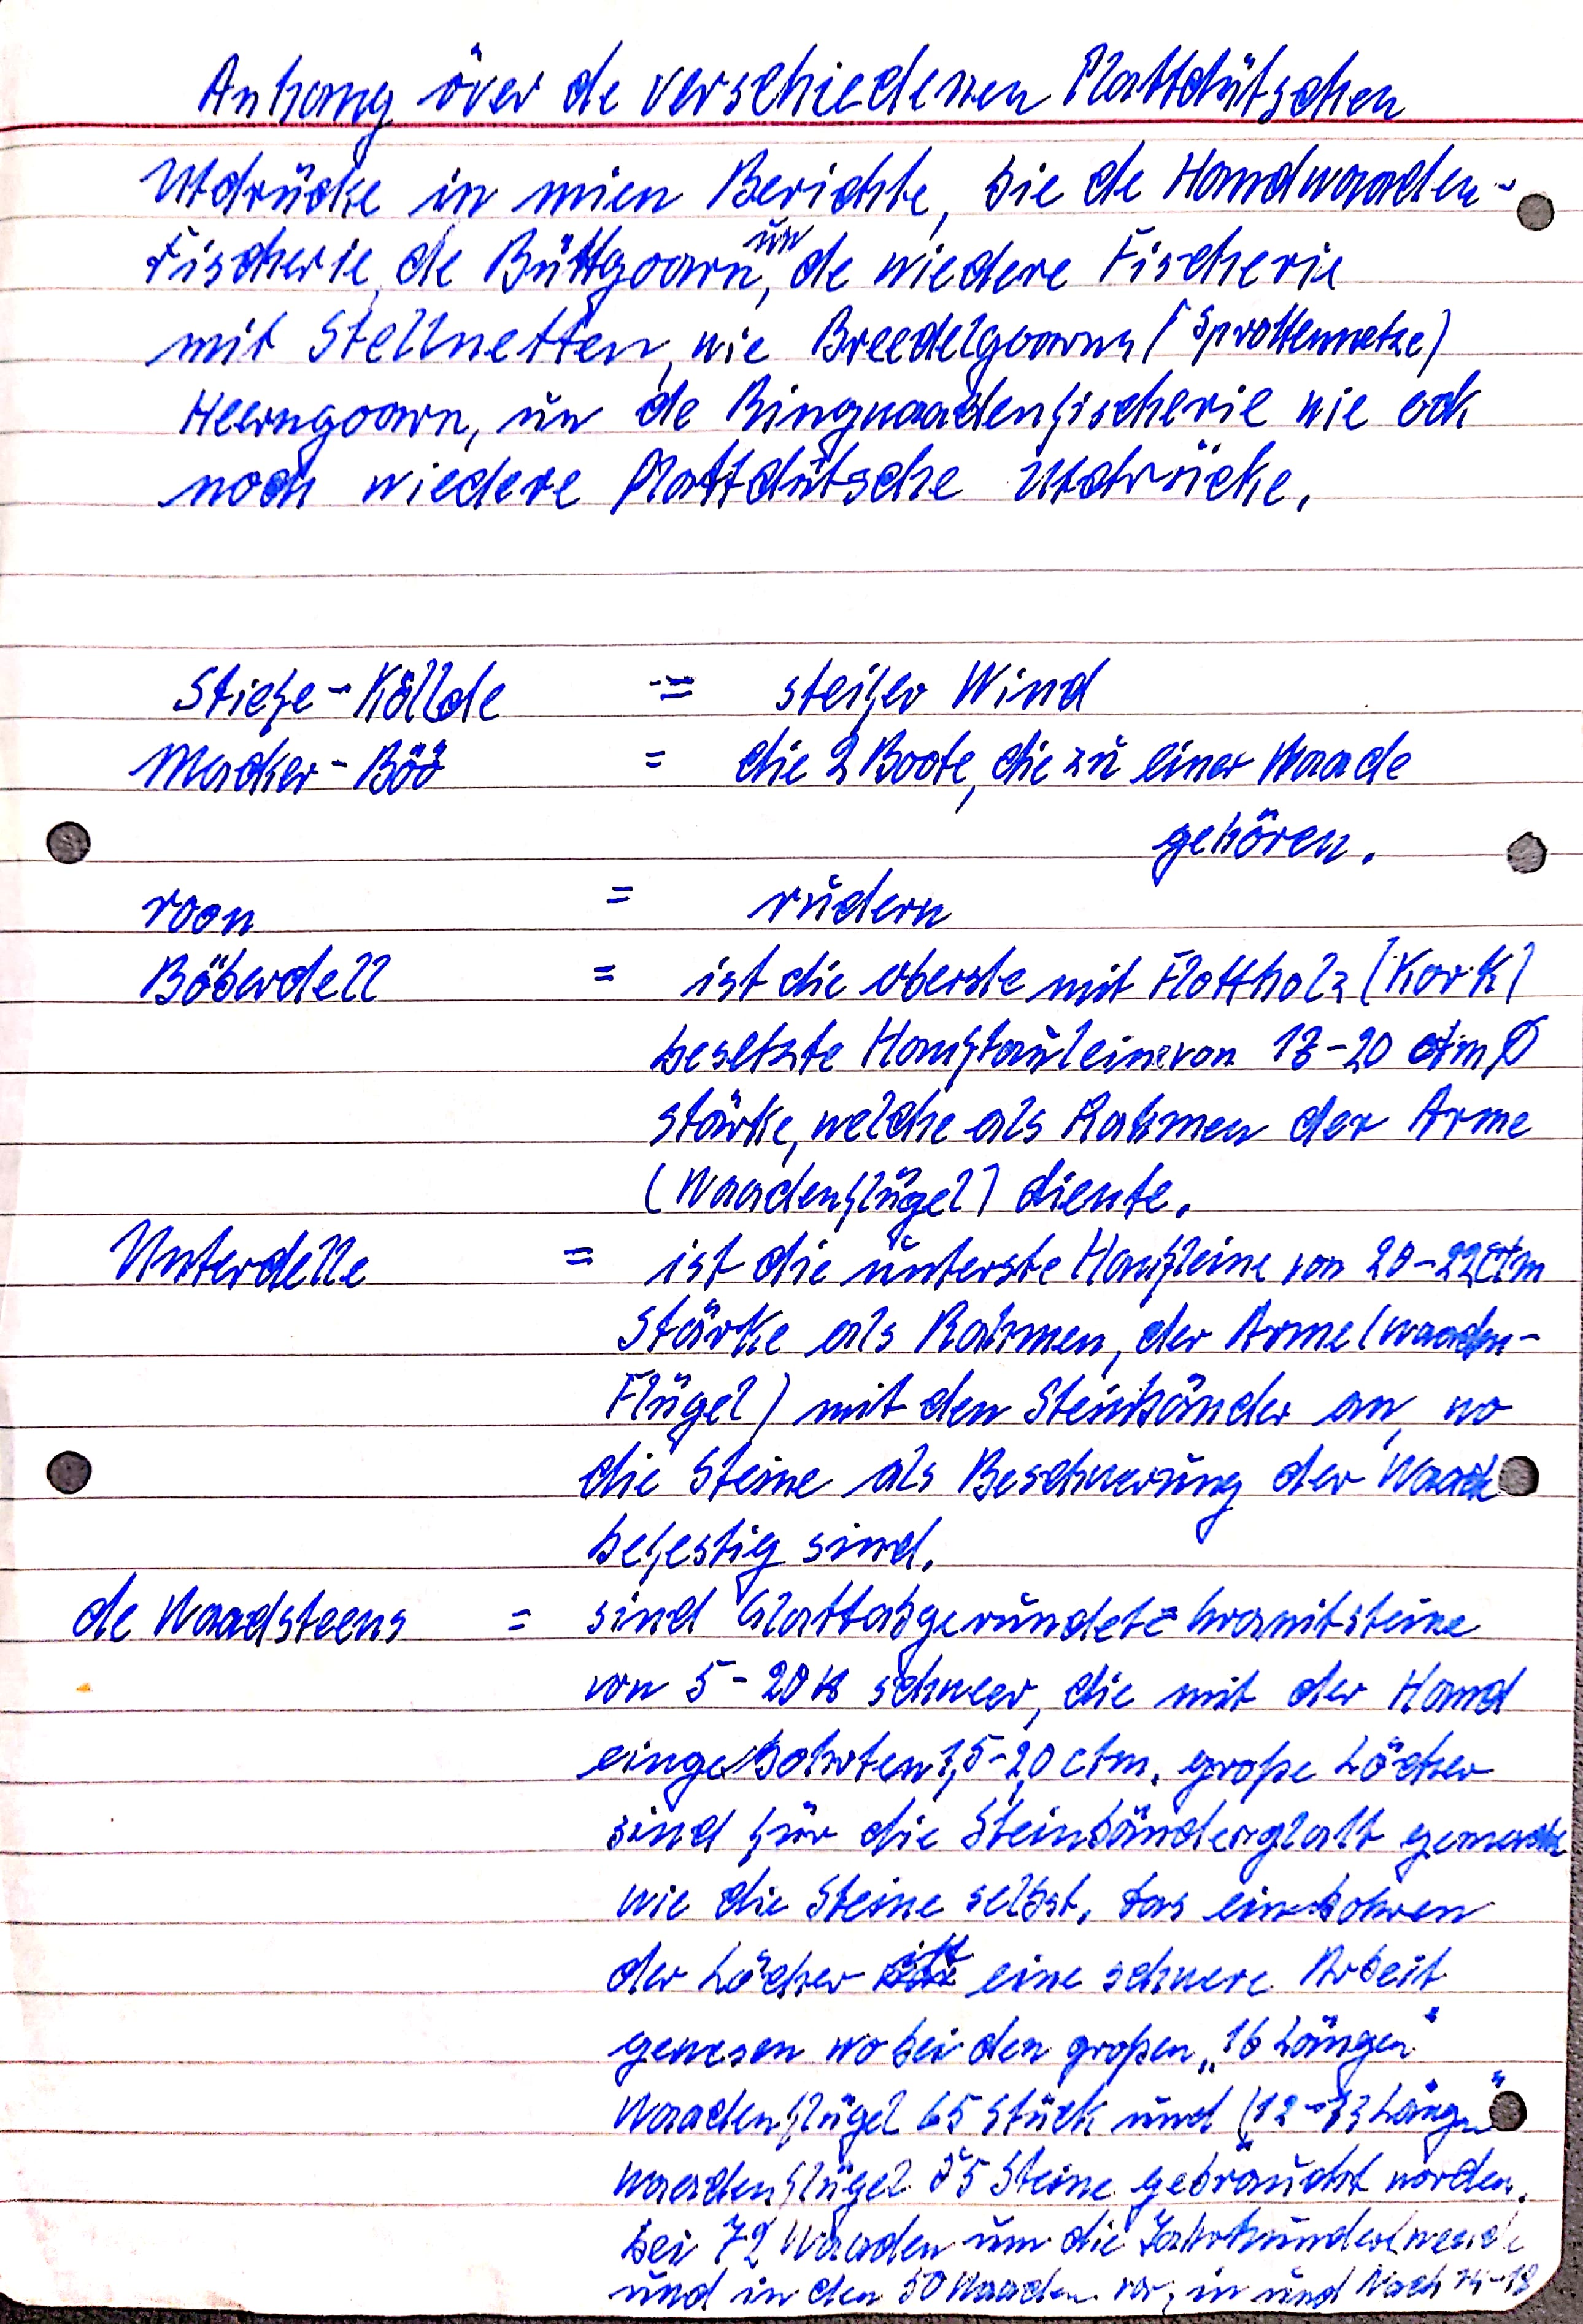 Anhang över de verschiedenen Plattdütschen
Utdrücke in mien Berichte, bie de Handwaaden-
Fischerie, de Büttgoarn, un de wiedere Fischerie
mit Stellnetten, wie Breedelgoarns (Sprottennetze)
Heerngoarn, un de Ringwaadenfischerie wie ock
noch wiedere Plattdütsche Utdrücke.
Stiefe-Köllde = steifer Wind
Macker-Böö = die 2 Boote, die zu einer Waade
gehören.
roon = rudern
Böberdell = ist die oberste mit Flottholz (Kork)
besetzte Hanftauleine von 18-20 ctm Ø
stärke, welche als Rahmen der Arme
(Waadenflügel) diente.
Unterdelle = ist die unterste Hanfleine von 20-22 ctm
Stärke als Rahmen, der Arme (Waaden-
Flügel) mit den Steinbänder an, wo
die Steine als Beschwerung der Waade
befestig sind.
de Waadsteens = sind Glattabgerundete Granitsteine
von 5-20 K schwer, die mit der Hand
eingebohrten 1,5-2,0 ctm. große Löcher
sind für die Steinbänder glatt gemacht
wie die Steine selbst. Das einbohren
der Löcher ist eine schwere Arbeit
gewesen wo bei den großen „16 Längen"
Waadenflügel 65 Stück und („12-13 Längen"
Waadenflügel 55 Steine gebraucht worden.
bei 72 Waaden um die Jahrhundertwende
und in den 50 Waaden vor, in und Nach 14-18